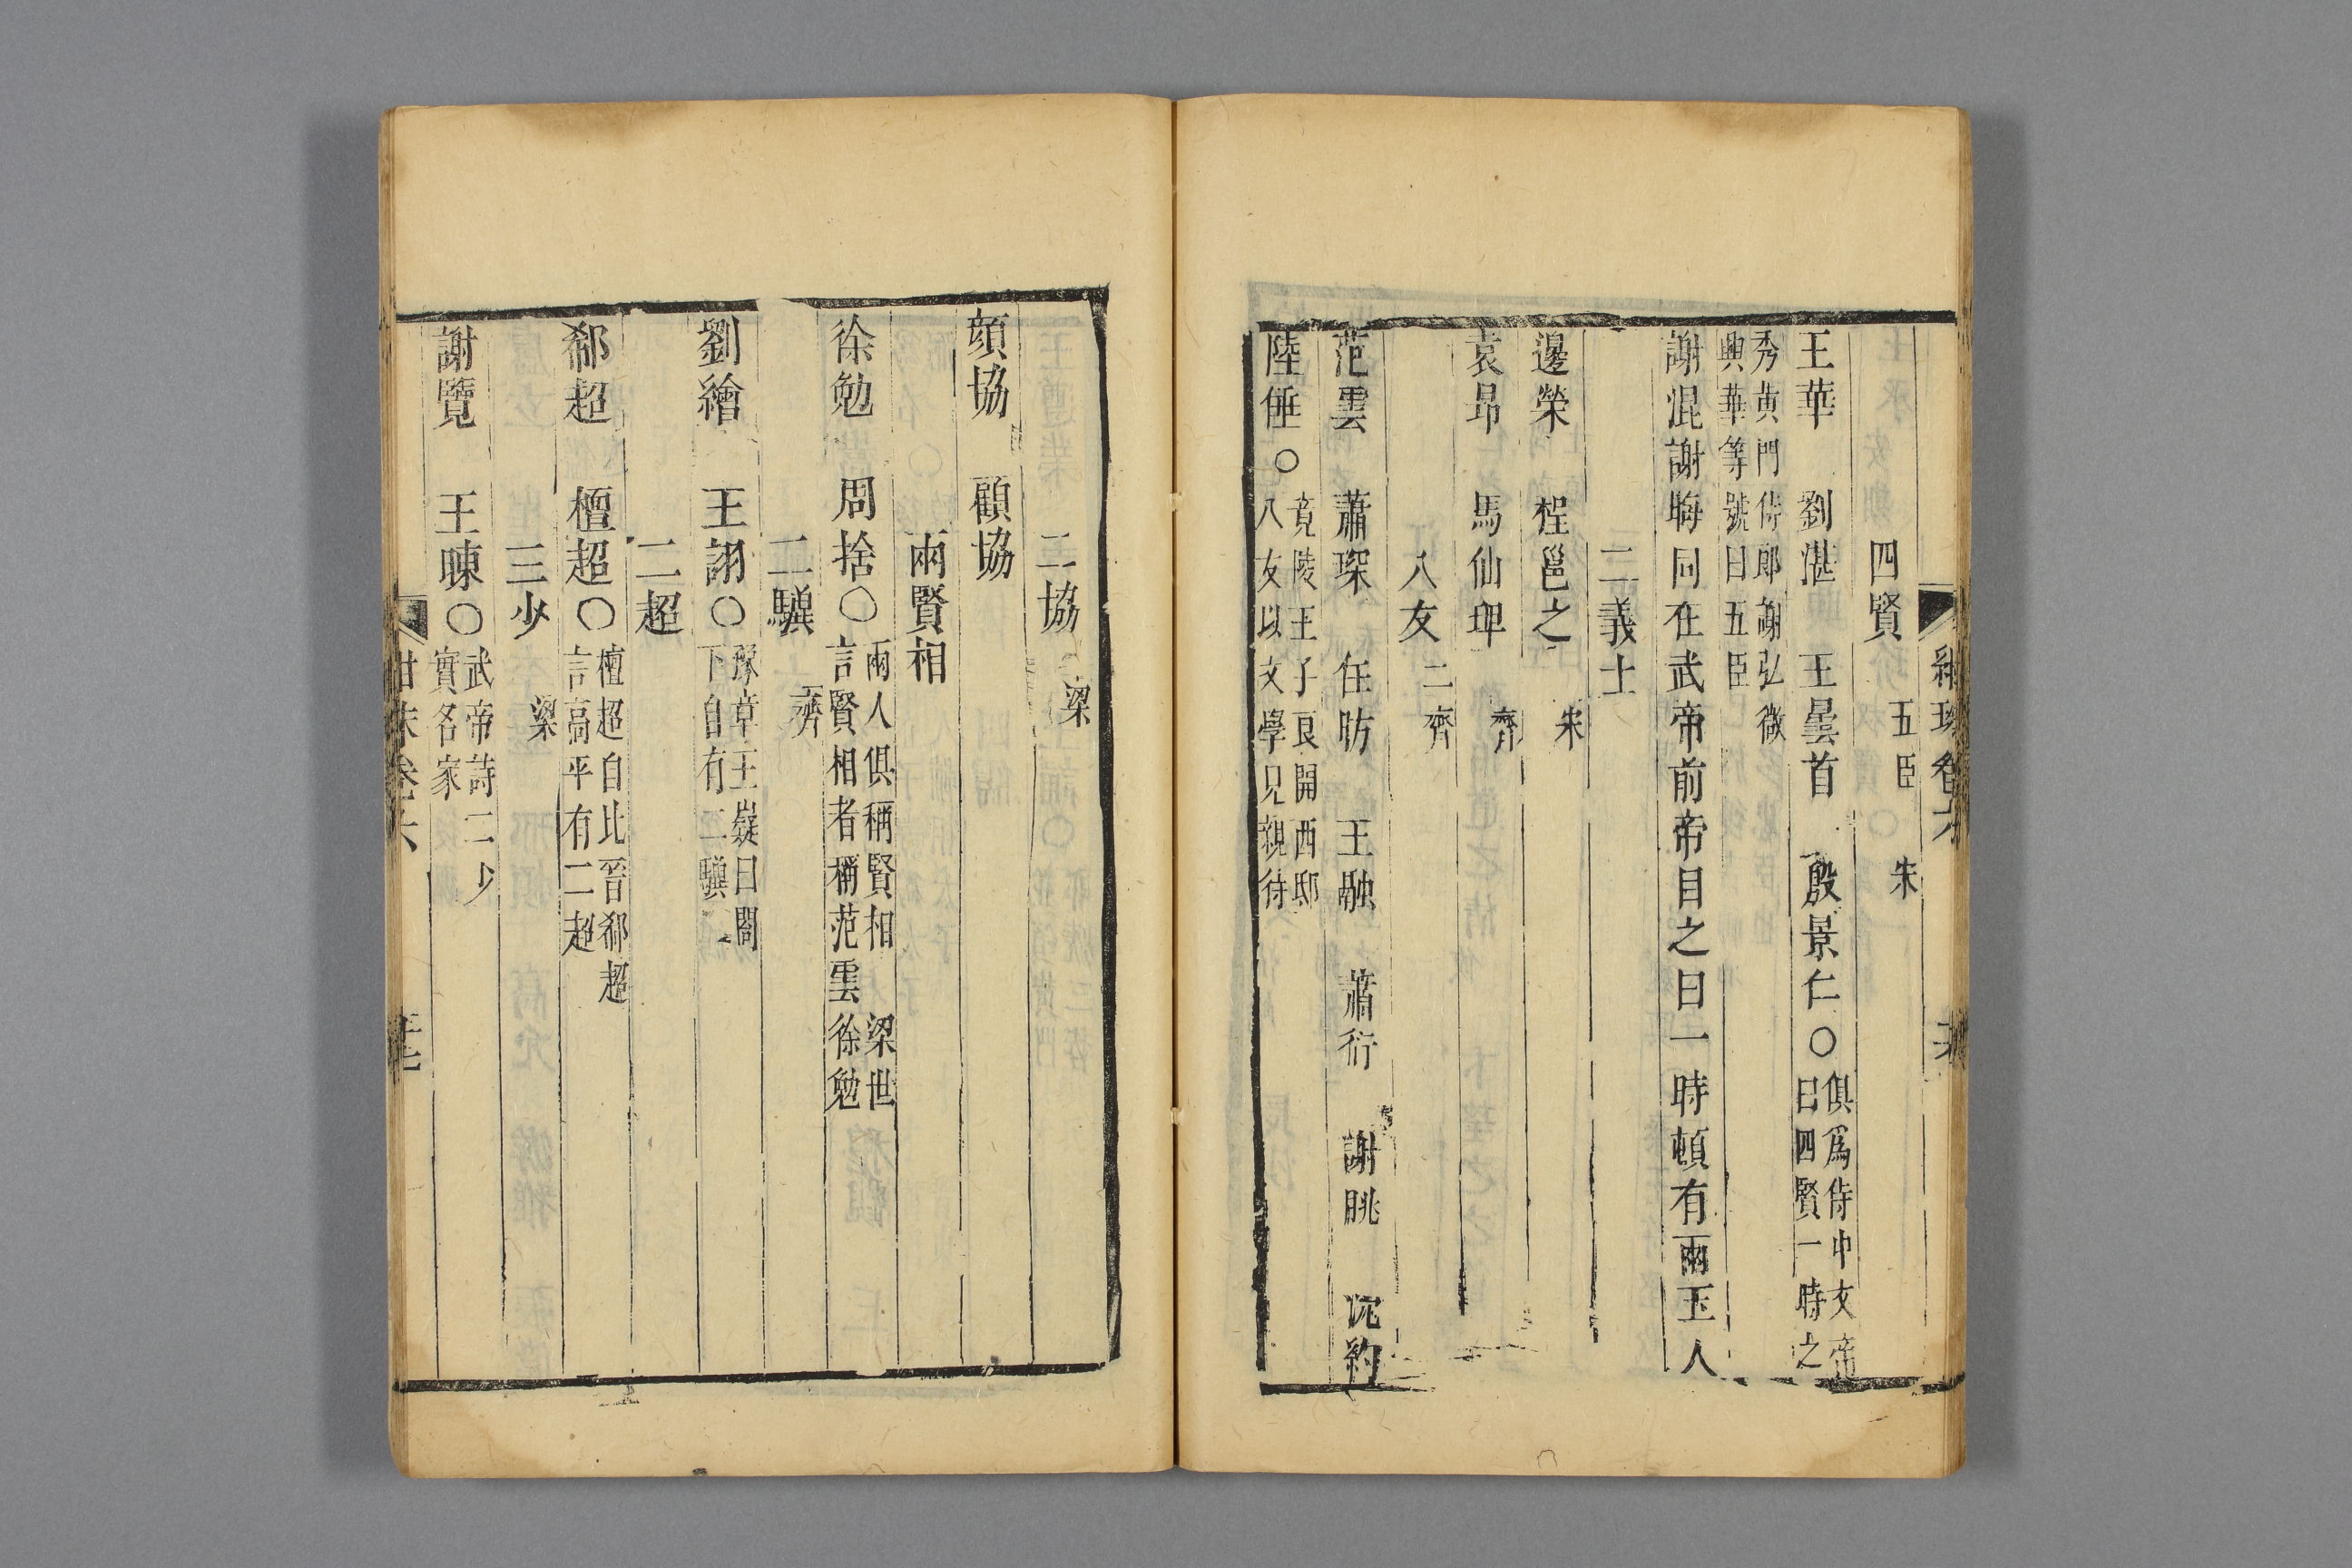 四賢 五臣 宋
王華 劉湛 王曇首 殷景仁〇俱爲侍中文帝
曰四賢一時之
秀黄門侍郎謝弘微
與華等號曰五臣
謝混謝晦同在武帝前帝目之曰一時頓有兩玉人
二義士 宋
邊榮 程邕之
袁昂 馬仙琕 齊
八友二齊
范雲 蕭琛 任昉 王融 蕭衍 謝眺 沈約
陸倕〇竟陵王子良開西邸
八友以文學見親待
二協 梁
顔協 顧協
兩賢相
徐勉 周捨〇兩人俱稱賢相 梁世
言賢相者稱范雲徐勉
二驥 齊
劉繪 王詡〇豫章王嶷曰閤
下自有二驥
二超
郗超 檀超〇檀超自比晉郗超
言高平有二超
三少 梁
謝覽 王暕〇武帝詩二少
實名家